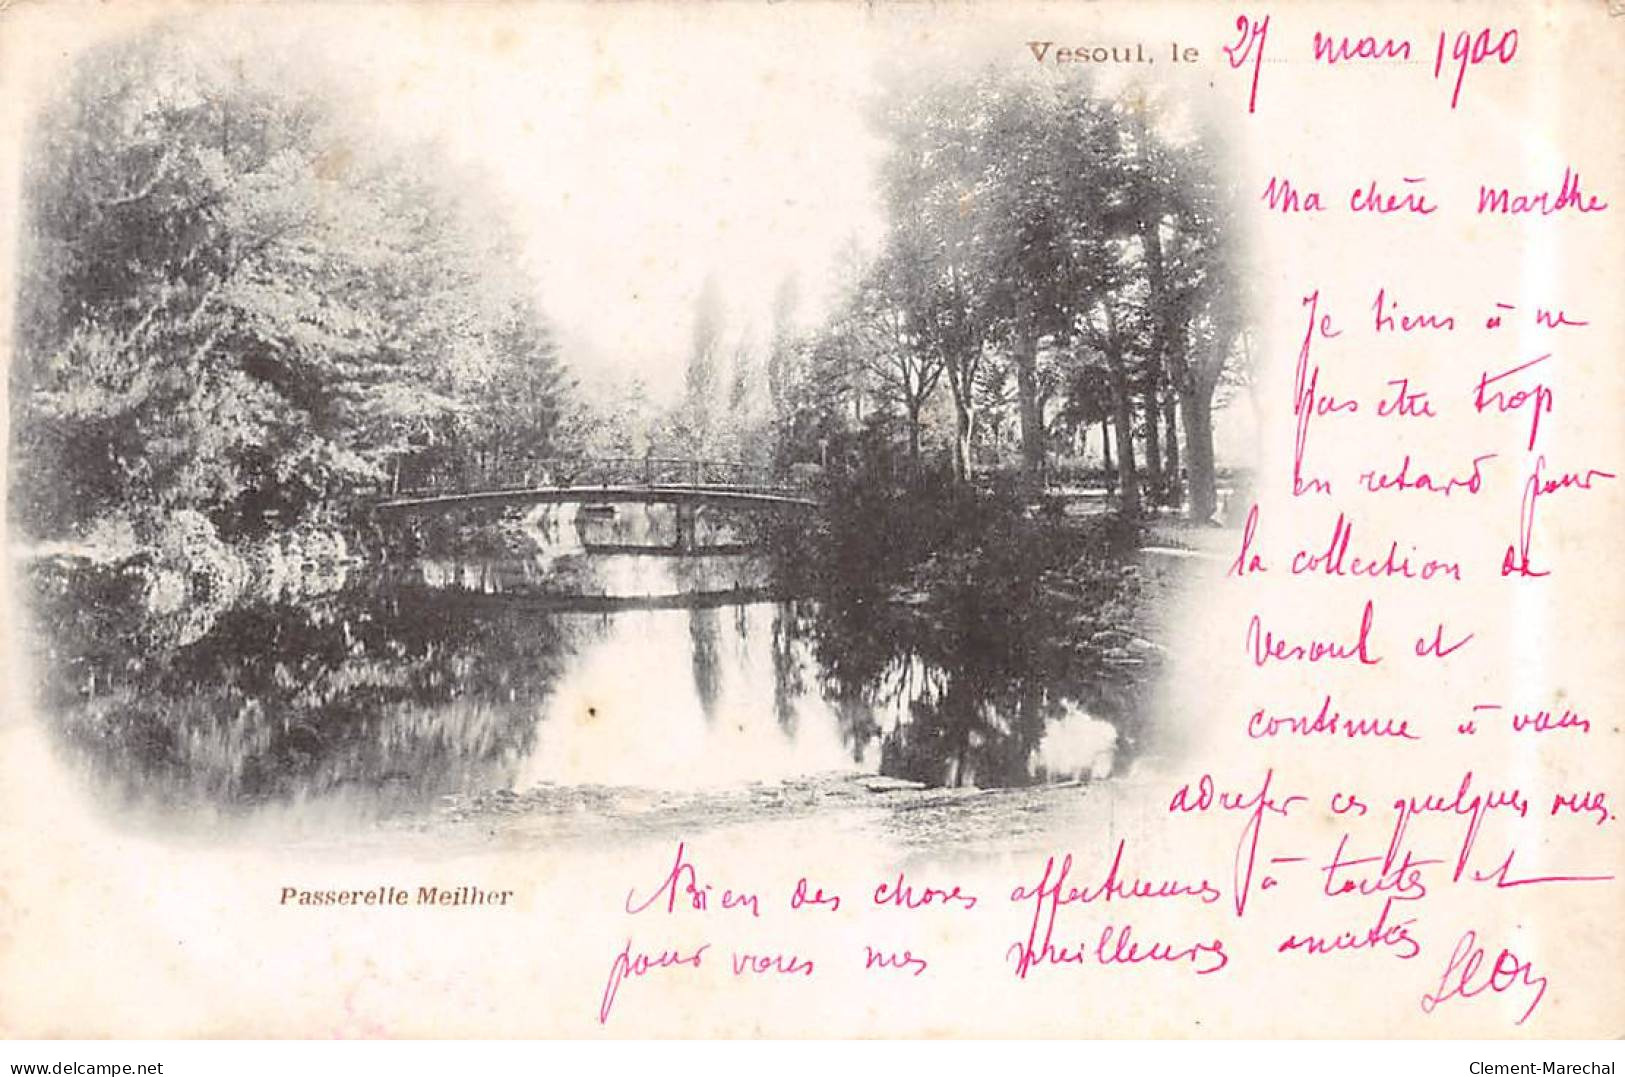 Vesoul, le 27 mars 1900
Ma chère Marthe
Je tiens à ne
pas être trop
en retard pour
la collection de
Vesoul et
continue à vous
adresser ces quelques vues.
Bien des choses affectueuses à toutes et
pour vous mes meilleures amitiés
Léon
Passerelle Meilher
delcampe.net
Clement-Marechal